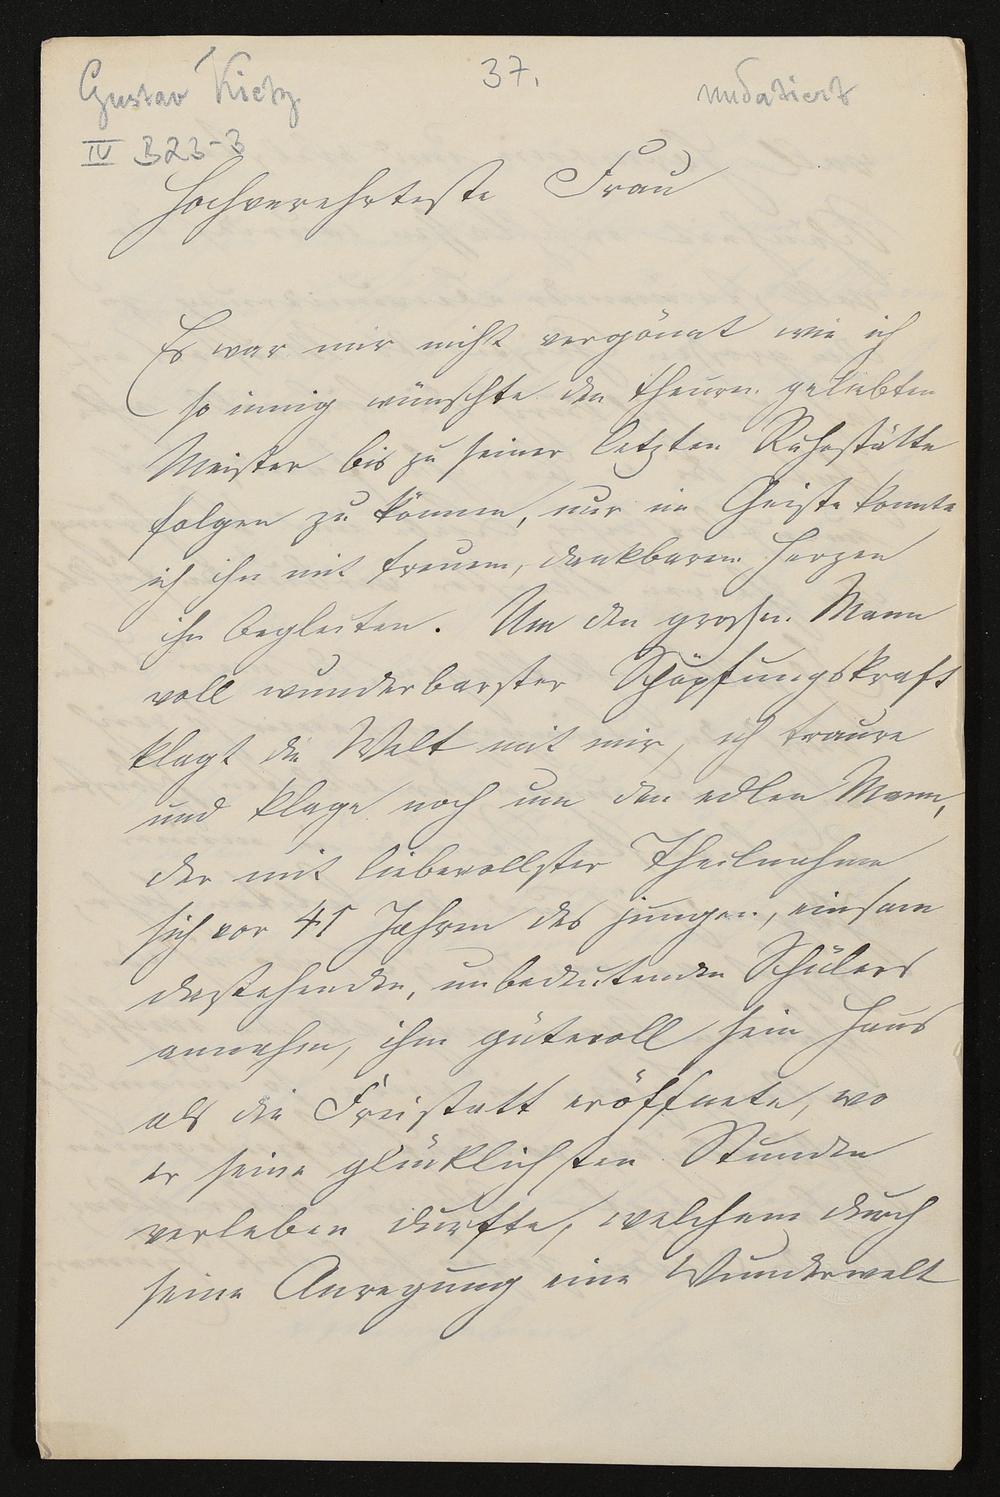 Gustav Kietz
37.
undatiert
IV 323-3
Hochverehrteste Frau
Es war mir nicht vergönnt wie ich
so innig wünschte den theuren geliebten
Meister bis zu seiner letzten Ruhestätte
folgen zu können, nur im Geiste konnte
ich ihn mit treuem, dankbarem Herzen
ihn begleiten. Um den grossen Mann
voll wunderbarster Schöpfungskraft
klagt die Welt mit mir, ich traure
und klage noch um den edlen Mann,
der mit liebevollster Theilnahme
sich vor 41 Jahren des jungen, einsam
dastehenden, unbedeutenden Schülers
annahm, ihm gütevoll sein Haus
als die Freistatt eröffnete, wo
er seine glücklichsten Stunden
verleben durfte, welchem durch
seine Anregung eine Wunderwelt